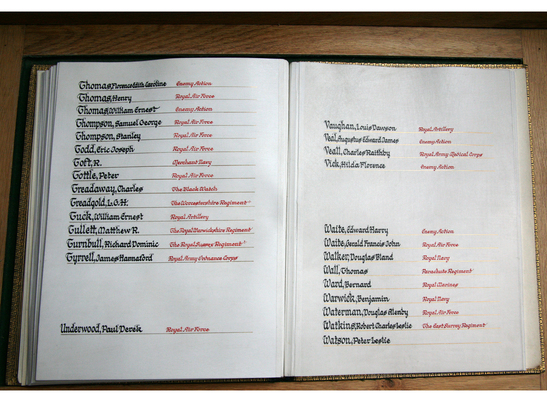 Thomas, Florence Edith Caroline Enemy Action
Thomas, Henry Royal Air Force
Thomas, William Ernest Enemy Action
Thompson, Samuel George Royal Air Force
Thompson, Stanley Royal Air Force
Todd, Eric Joseph Royal Air Force
Toft, R. Merchant Navy
Tottle, Peter Royal Air Force
Treadaway, Charles The Black Watch
Treadgold, L.G.H. The Worcestershire Regiment
Tuck, William Ernest Royal Artillery
Tullett, Matthew R. The Royal Warwickshire Regiment
Turnbull, Richard Dominic The Royal Sussex Regiment
Tyrrell, James Hannaford Royal Army Ordnance Corps
Underwood, Paul Derek Royal Air Force
Vaughan, Louis Dawson Royal Artillery
Veal, Augustus Edward James Enemy Action
Veall, Charles Raithby Royal Army Medical Corps
Vick, Hilda Florence Enemy Action
Waite, Edward Harry Enemy Action
Waite, Gerald Francis John Royal Air Force
Walker, Douglas Bland Royal Navy
Wall, Thomas Parachute Regiment
Ward, Bernard Royal Marines
Warwick, Benjamin Royal Navy
Waterman, Douglas Allenby Royal Air Force
Watkins, Robert Charles Leslie The East Surrey Regiment
Watson, Peter Leslie